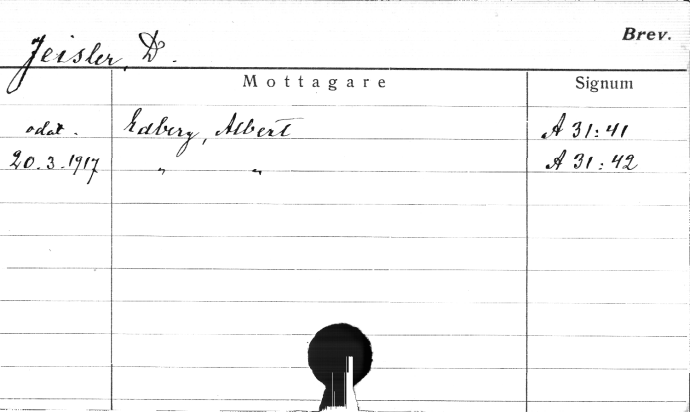 Brev.
Jeisler, D.
Mottagare Signum
odat. Edberg, Albert A 31:41
20.3.1917 " " A 31:42